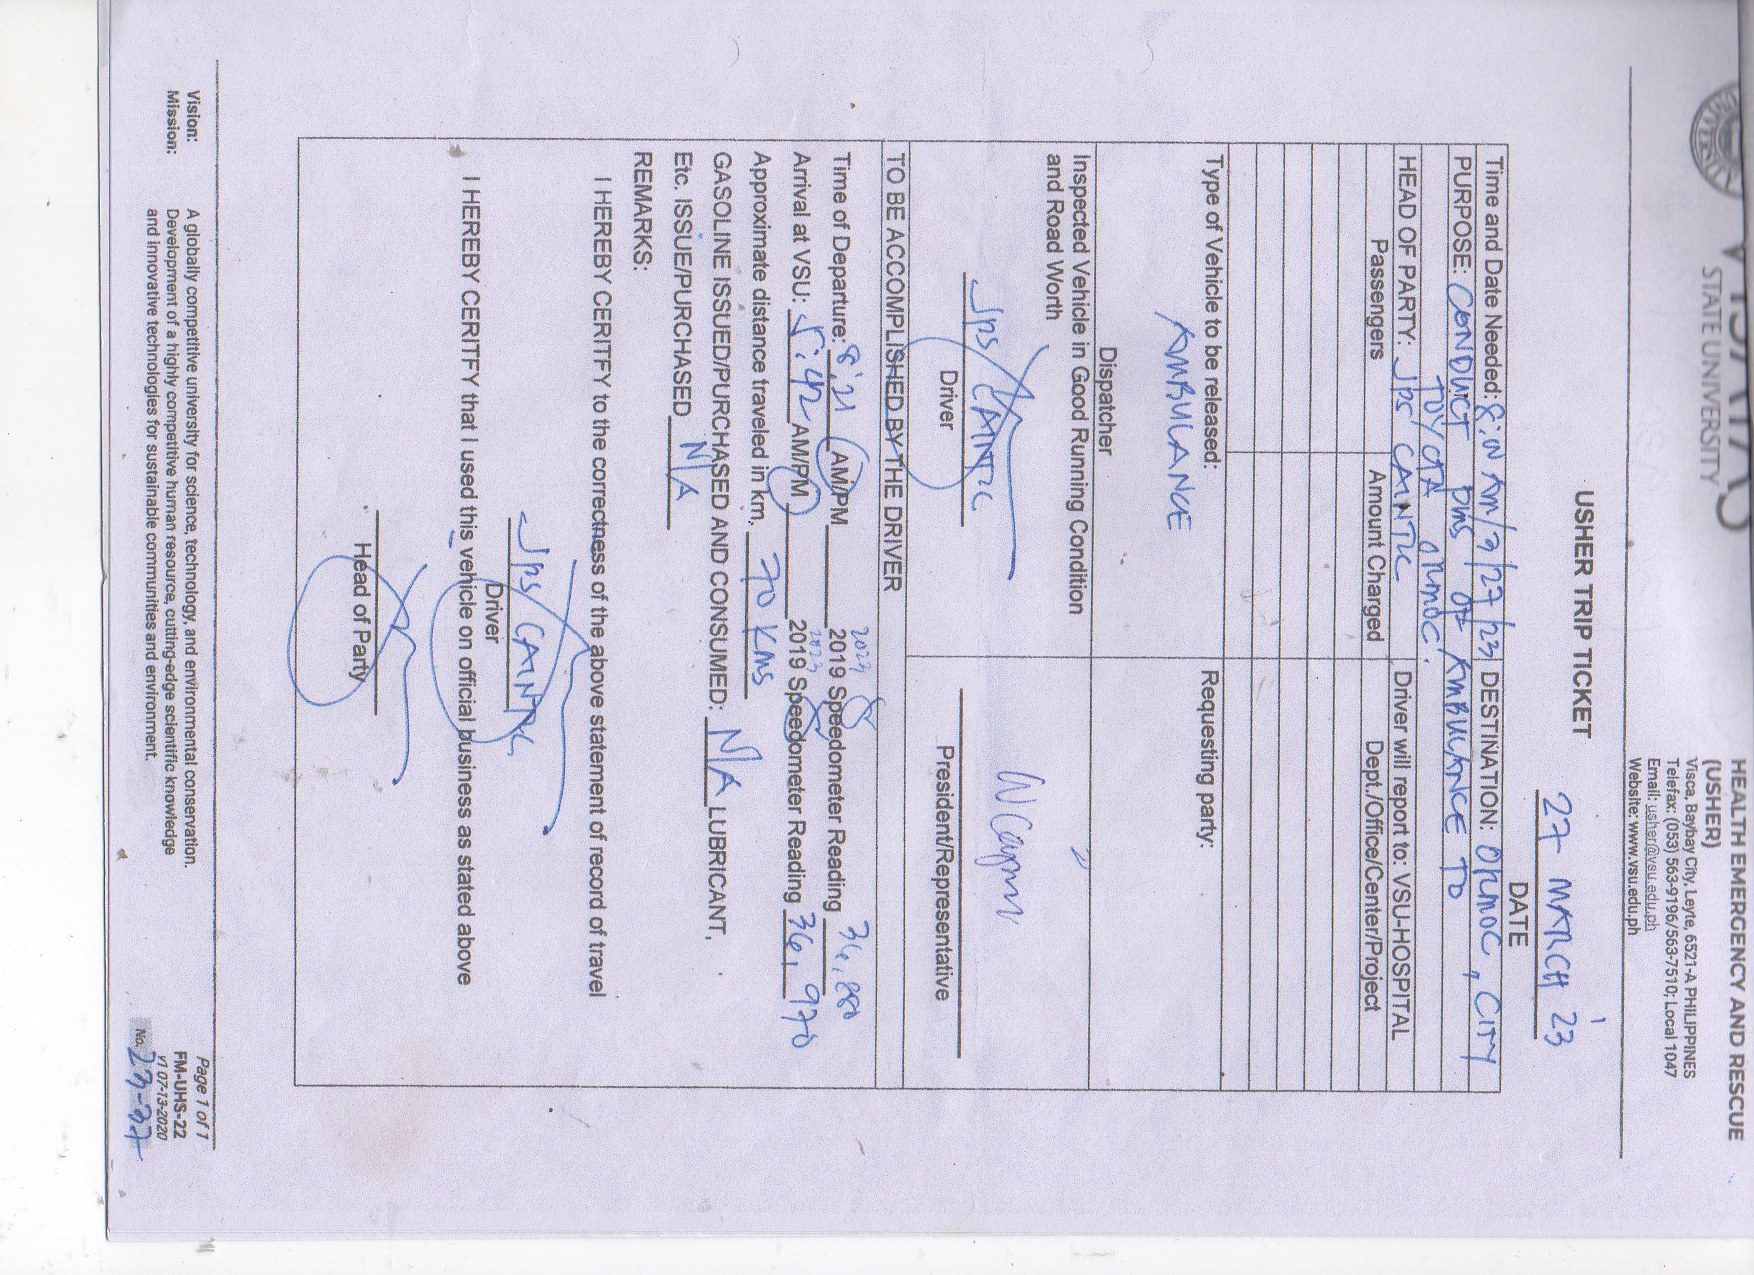 STATE UNIVERSITY
HEALTH EMERGENCY AND RESCUE
(USHER)
Visca, Baybay City, Leyte, 6521-A PHILIPPINES
Telefax: (053) 563-9196/563-7510; Local 1047
Email: usher@vsu.edu.ph
Website: www.vsu.edu.ph
USHER TRIP TICKET
27 MARCH '23
DATE
Time and Date Needed: AM/3/27/23 DESTINATION: ORMOC, CITY
PURPOSE: CONDUCT PMS OF AMBULANCE TO
TOYOTA ORMOC.
HEAD OF PARTY: JPS CAINTIC Driver will report to: VSU-HOSPITAL
Passengers Amount Charged Dept./Office/Center/Project
Type of Vehicle to be released: Requesting party:
AMBULANCE
Dispatcher
Inspected Vehicle in Good Running Condition
and Road Worth
JPS/CAINTIC
Driver President/Representative
TO BE ACCOMPLISHED BY THE DRIVER
Time of Departure: 8:21 AM/PM 2023 2019 Speedometer Reading 36,880
Arrival at VSU: 5:42 AM/PM 2023 2019 Speedometer Reading 36,970
Approximate distance traveled in km. 70 KMS
GASOLINE ISSUED/PURCHASED AND CONSUMED: N/A LUBRICANT,
Etc. ISSUE/PURCHASED N/A
REMARKS:
I HEREBY CERITFY to the correctness of the above statement of record of travel
JPS/CAINTIC
Driver
I HEREBY CERITFY that I used this vehicle on official business as stated above
Head of Party
Vision: A globally competitive university for science, technology, and environmental conservation.
Mission: Development of a highly competitive human resource, cutting-edge scientific knowledge
and innovative technologies for sustainable communities and environment.
Page 1 of 1
FM-UHS-22
v1 07-13-2020
No. 23-37